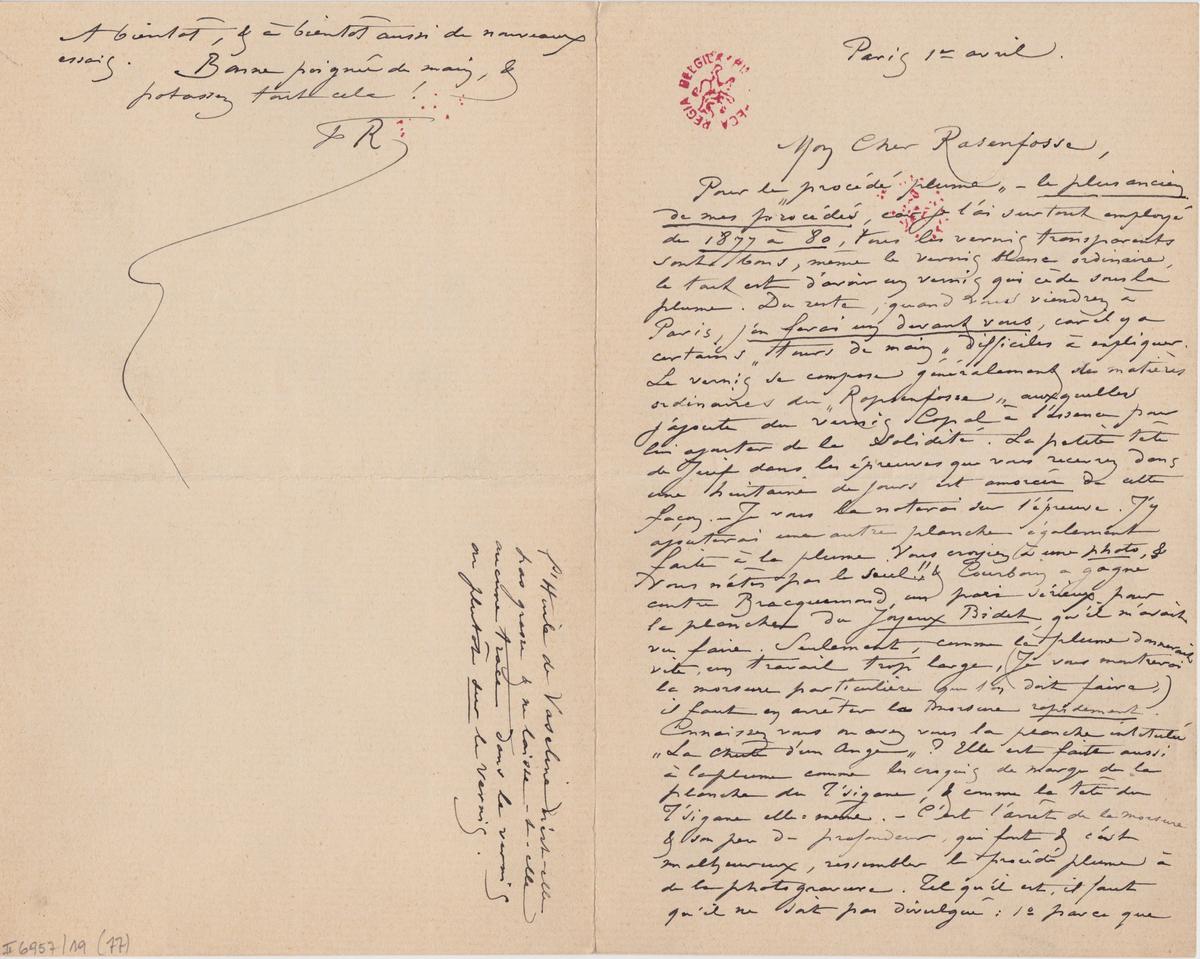 Paris 1er avril.
Mon Cher Rasenfosse,
Pour le „procédé plume„ – le plus ancien
de mes procédés, car je l'ai surtout employé
de 1877 à 80, tous les vernis transparents
sont bons, même le vernis blanc ordinaire,
le tout est d'avoir un vernis qui cède sous la
plume. Du reste, quand vous viendrez à
Paris, j'en ferai un devant vous, car il y a
certains „tours de main„ difficiles à expliquer.
Le vernis se compose généralement des matières
ordinaires du „Ropsenfosse„ auxquelles
j'ajoute du vernis Copal à l'essence pour
lui ajouter de la Solidité. La petite tête
de Juif dans les épreuves que vous recevrez dans
une huitaine de jours est amorcée de cette
façon. – Je vous la noterai sur l'épreuve. J'y
ajouterai une autre planche également
faite à la plume. Vous croyiez à une photo, &
vous n'êtes pas le seul! & Courboin a gagné
contre Bracquemond, un pari sérieux pour
la planche du Joyeux Bidet, qu'il m'avait
vu faire. Seulement, comme la plume donnerait
vite, un travail trop large, (Je vous montrerai
la morsure particulière que l'on doit faire,)
il faut en arrêter la morsure rapidement.
Connaissez vous ou avez vous la planche intitulée
„La Chute d'un Ange„? Elle est faite aussi
à la plume comme les croquis de marge de la
planche du Tsigane, & comme la tête du
Tsigane elle-même. – C'est l'arrêt de la morsure
& son peu de profondeur, qui font & c'est
malheureux, ressembler le procédé plume à
de la photogravure. Tel qu'il est, il faut
qu'il ne soit pas divulgué: 1o parce que
A bientôt, & à bientôt aussi de nouveaux
essais. Bonne poignée de main, &
potassez tout cela!
F R
L'Huile de Vaseline n'est-elle
pas grasse & ne laisse-t-elle
aucune trace dans le vernis
ou plutôt sur le vernis.
REGIA BELGICA
II 6957/19 (77)